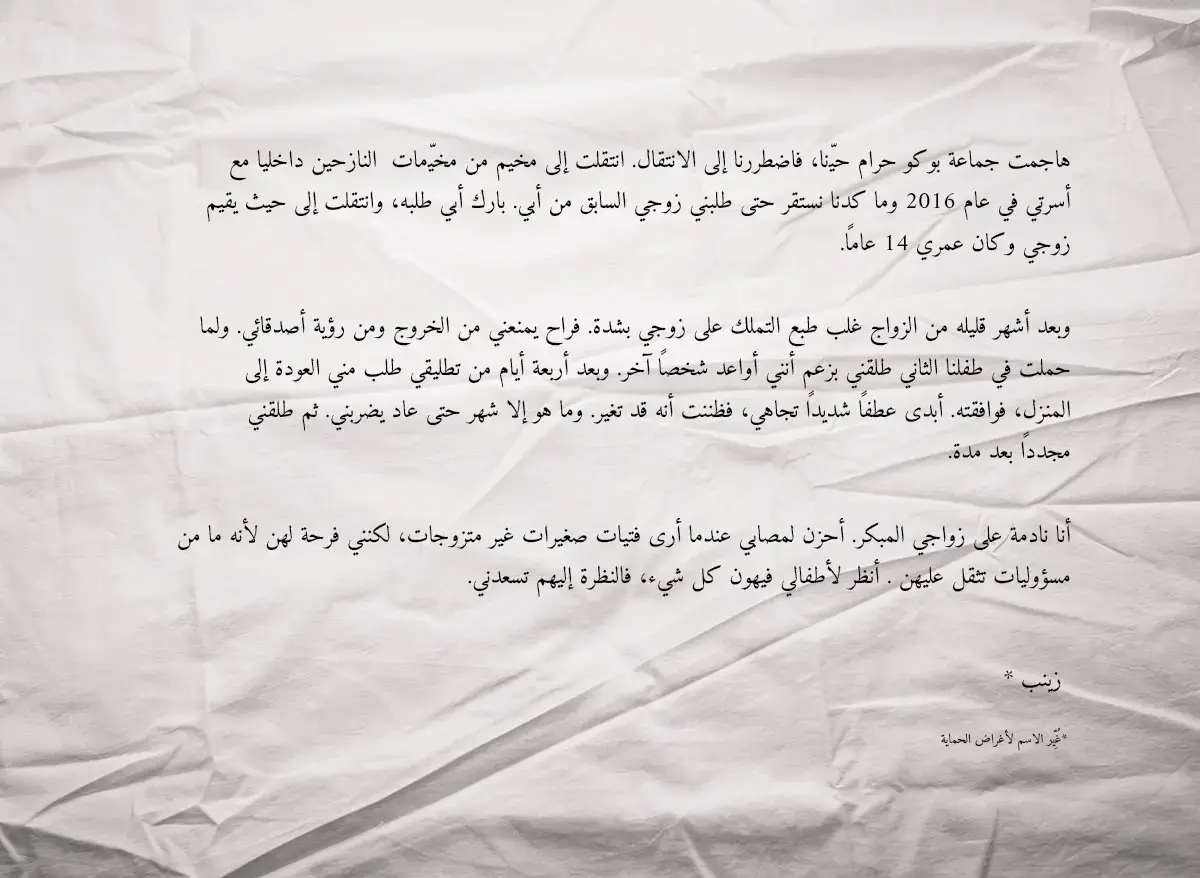 هاجمت جماعة بوكو حرام حيّنا، فاضطررنا إلى الانتقال. انتقلت إلى مخيم من مخيّمات النازحين داخليا مع
أسرتي في عام 2016 وما كدنا نستقر حتى طلبني زوجي السابق من أبي. بارك أبي طلبه، وانتقلت إلى حيث يقيم
زوجي وكان عمري 14 عاماً.
وبعد أشهر قليله من الزواج غلب طبع التملك على زوجي بشدة. فراح يمنعني من الخروج ومن رؤية أصدقائي. ولما
حملت في طفلنا الثاني طلقني بزعم أنني أواعد شخصاً آخر. وبعد أربعة أيام من تطليقي طلب مني العودة إلى
المنزل، فوافقته. أبدى عطفاً شديداً تجاهي، فظننت أنه قد تغير. وما هو إلا شهر حتى عاد يضربني. ثم طلقني
مجدداً بعد مدة.
أنا نادمة على زواجي المبكر. أحزن لمصابي عندما أرى فتيات صغيرات غير متزوجات، لكنني فرحة لهن لأنه ما من
مسؤوليات تثقل عليهن . أنظر لأطفالي فيهون كل شيء، فالنظرة إليهم تسعدني.
زينب *
*غُيّر الاسم لأغراض الحماية